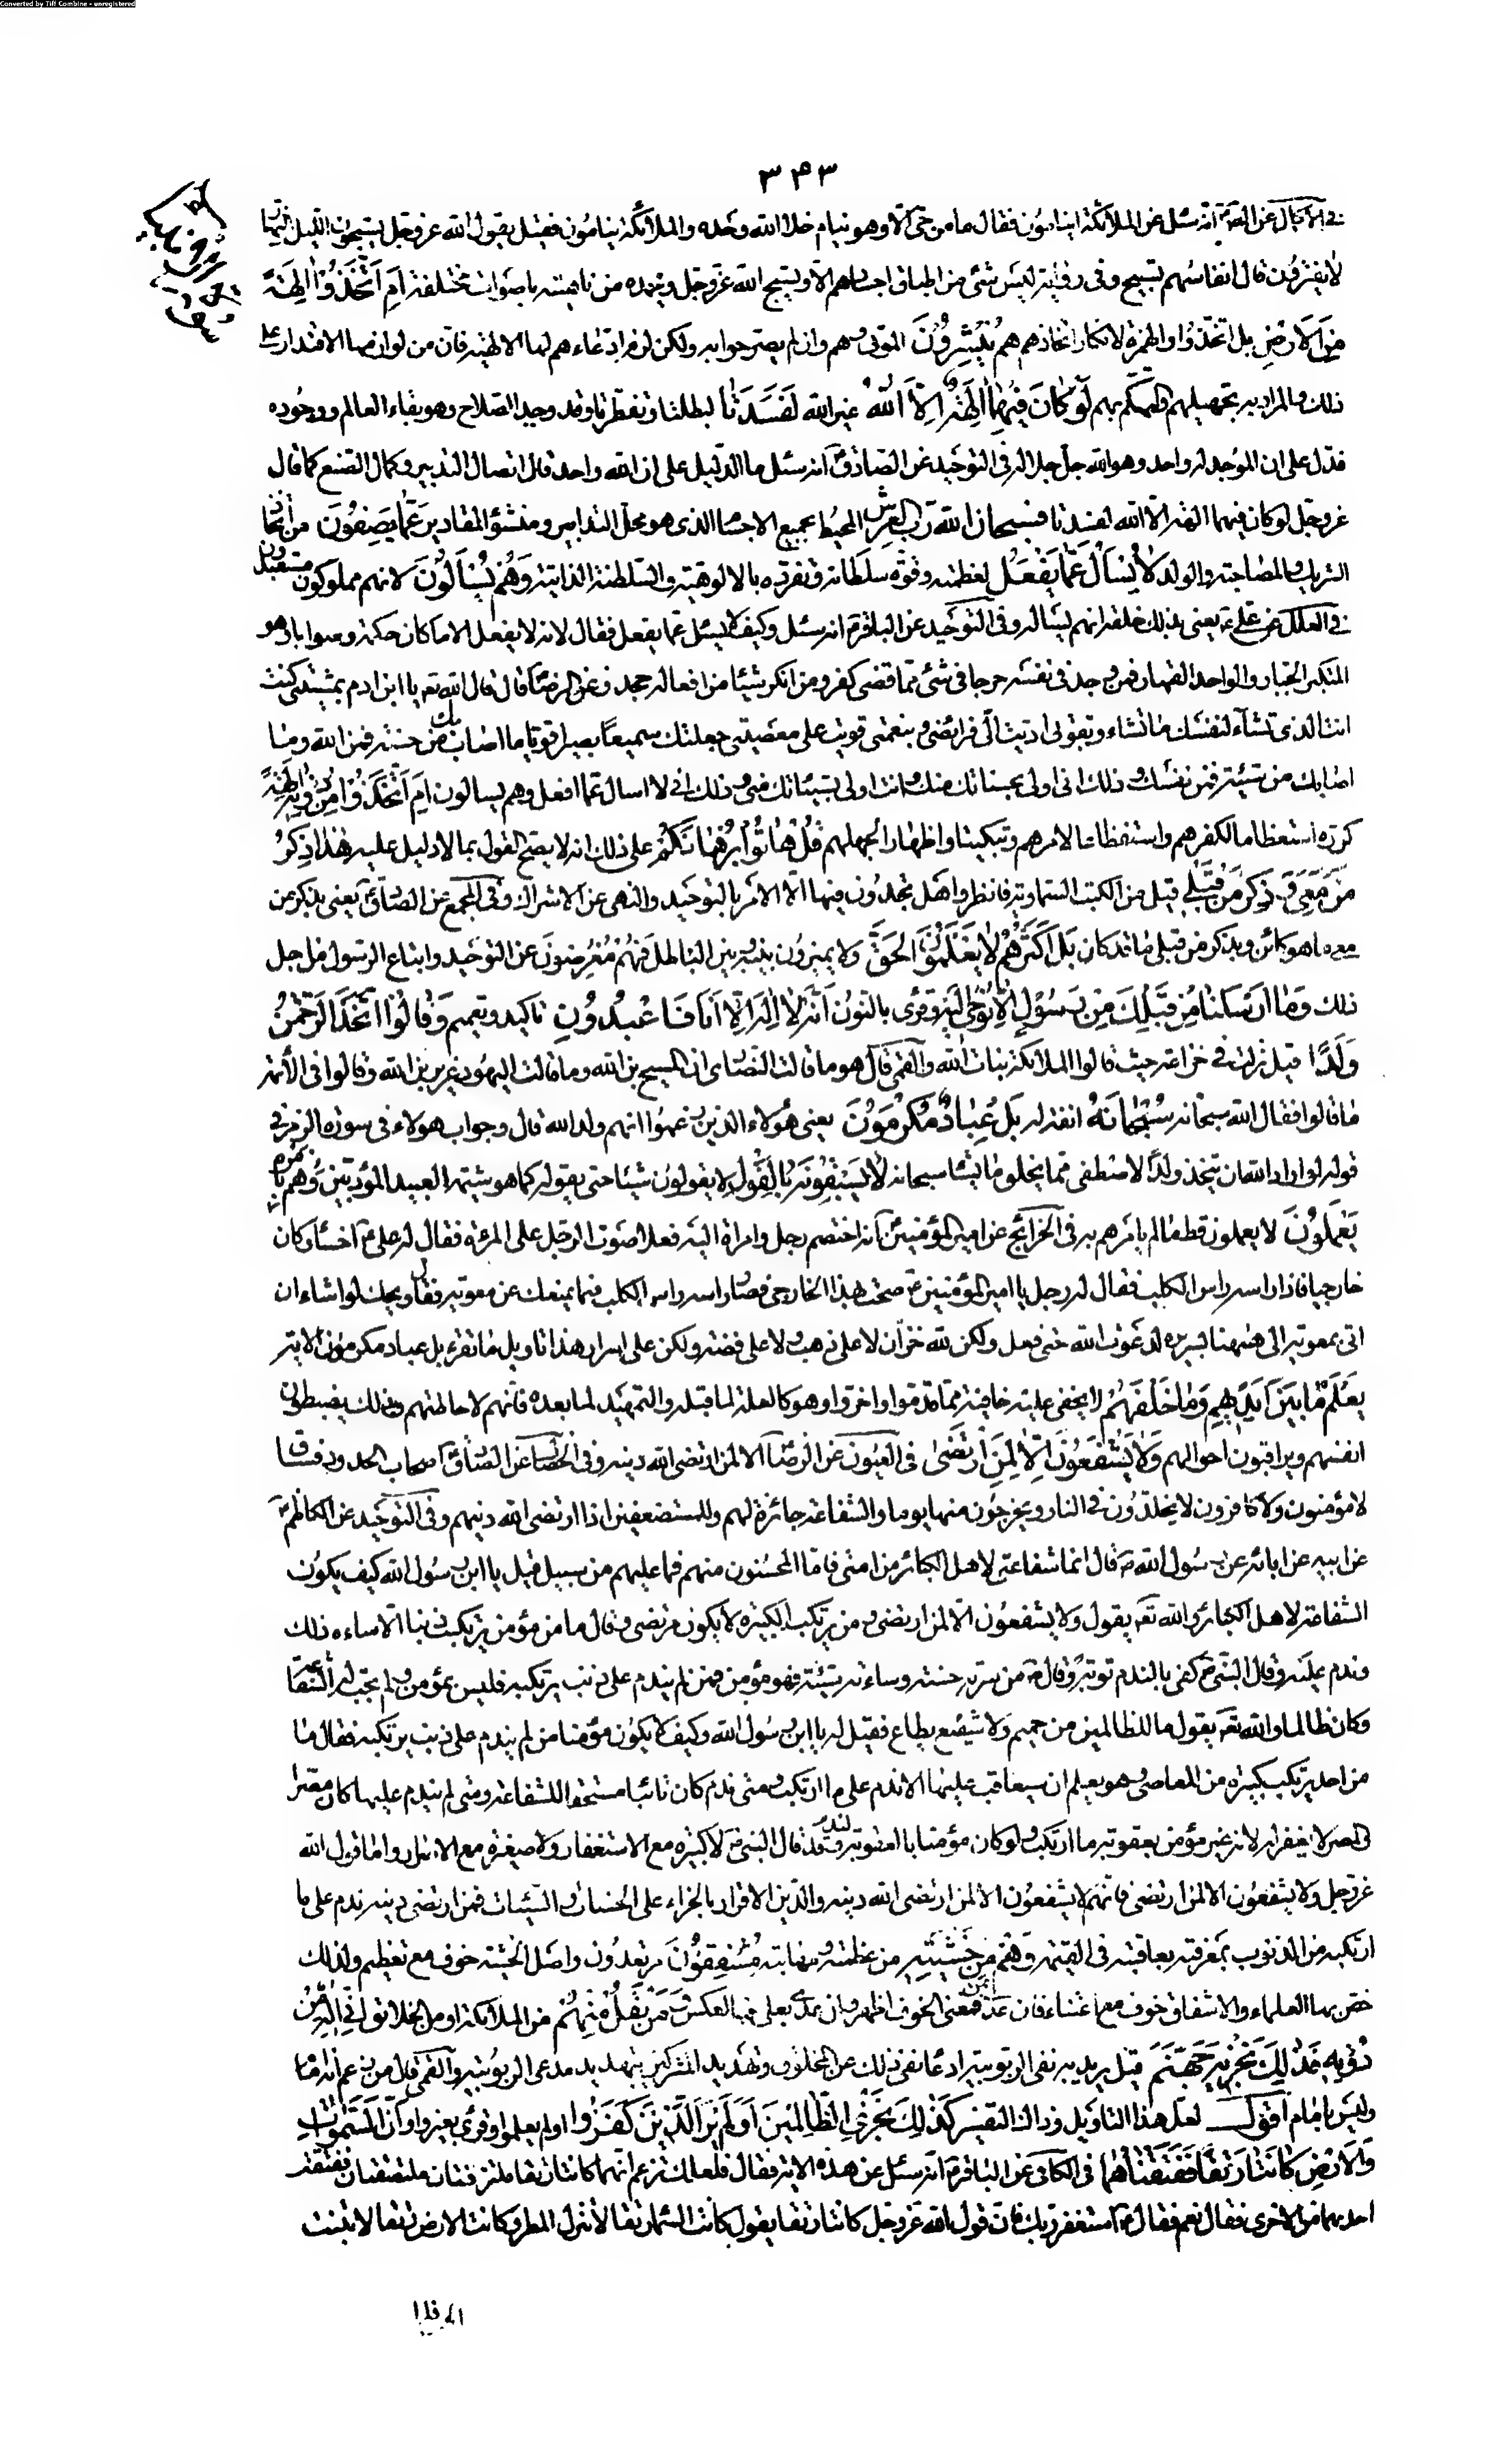 Converted by Tiff Combine - unregistered
٣٤٣
في الاكمال عن الصادق انه سئل عن الملائكة اينامون فقال ما من حي الا وهو ينام خلا الله وحده والملائكة ينامون فقيل يقول الله عز وجل يسبحون الليل والنهار
لا يفترون قال انفاسهم تسبيح وفي رواية ليس شئ من اطباق اجسادهم الا ويسبح الله عز وجل ويحمده من ناحيته باصوات مختلفة اَمِ اتَّخَذُوا اٰلِهَةً
مِنَ الْاَرْضِ بل اتخذوا والهمزة لانكار اتخاذهم هُمْ يُنْشِرُونَ الموتى وهم وان لم يصرحوا به ولكن لزم ادعاءهم لها الالهية فان من لوازمها الاقتدار على
ذلك والمراد به تجهيلهم والتهكم بهم لَوْ كٰانَ فِيهِمٰا اٰلِهَةٌ اِلَّا اللّٰهُ غير الله لَفَسَدَتٰا لبطلتا وتفطرتا وقد وجد الصلاح وهو بقاء العالم ووجوده
فدل على ان الموجد له واحد وهو الله جل جلاله في التوحيد عن الصادق انه سئل ما الدليل على ان الله واحد قال اتصال التدبير وكمال الصنع كما قال
عز وجل لو كان فيهما الهة الا الله لفسدتا فسبحان الله رب العرش المحيط بجميع الاجسام الذي هو محل التدابير ومنشؤ المقادير عَمّٰا يَصِفُونَ من اتخاذ
الشريك والصاحبة والولد لٰا يُسْأَلُ عَمّٰا يَفْعَلُ لعظمته وقوة سلطانه وتفرده بالالوهية والسلطنة الذاتية وَهُمْ يُسْأَلُونَ لانهم مملوكون مستعبدون
في العلل عن علي يعني بذلك خلقه انهم يسئالهم وفي التوحيد عن الباقر انه سئل وكيف لا يسئل عما يفعل فقال لانه لا يفعل الا ما كان حكمة وصوابا وهو
المتكبر الجبار والواحد القهار فمن وجد في نفسه حرجا في شئ مما قضى كفر ومن انكر شيئا من افعاله جحد وعن الرضا قال قال الله تعالى يا ابن ادم بمشيتي كنت
انت الذي تشاء لنفسك ما تشاء وبقوتي اديت الي فرائضي وبنعمتي قويت على معصيتي جعلتك سميعا بصيرا قويا ما اصابك من حسنة فمن الله وما
اصابك من سيئة فمن نفسك وذلك اني اولى بحسناتك منك وانت اولى بسيئاتك مني وذلك اني لا اسال عما افعل وهم يسالون اَمِ اتَّخَذُوا مِنْ دُونِهِ اٰلِهَةً
كرره استعظاما لكفرهم واستفظاعا لامرهم وتبكيتا واظهارا لجهلهم قُلْ هٰاتُوا بُرْهٰانَكُمْ على ذلك انه لا يصح القول بما لا دليل عليه هٰذٰا ذِكْرُ
مَنْ مَعِيَ وَذِكْرُ مَنْ قَبْلِي قيل من الكتب السماوية فانظروا هل تجدون فيها الا الامر بالتوحيد والنهى عن الاشراك وفي المجمع عن الصادق يعني بذكر من
معه ما هو كائن وبذكر من قبلي ما قد كان بَلْ اَكْثَرُهُمْ لٰا يَعْلَمُونَ الْحَقَّ ولا يميزون بينه وبين الباطل فَهُمْ مُعْرِضُونَ عن التوحيد واتباع الرسول من اجل
ذلك وَمٰا اَرْسَلْنٰا مِنْ قَبْلِكَ مِنْ رَسُولٍ اِلّٰا نُوحِي اِلَيْهِ وقرئ بالنون اَنَّهُ لٰا اِلٰهَ اِلّٰا اَنَا فَاعْبُدُونِ تاكيد وتعميم وَقٰالُوا اتَّخَذَ الرَّحْمٰنُ
وَلَدًا قيل نزلت في خزاعة حيث قالوا الملائكة بنات الله والقمي قال هو ما قالت النصارى ان المسيح بن الله وما قالت اليهود عزير بن الله وقالوا في الائمة
ما قالوا فقال الله سبحانه سُبْحٰانَهُ انفة له بَلْ عِبٰادٌ مُكْرَمُونَ يعني هؤلاء الذين زعموا انهم ولد الله قال وجواب هولاء في سورة الزمر في
قوله لو اراد الله ان يتخذ ولدا لاصطفى مما يخلق ما يشا سبحانه لٰا يَسْبِقُونَهُ بِالْقَوْلِ لا يقولون شيئا حتى يقوله كما هو شيمة العبيد المؤدبين وَهُمْ بِاَمْرِهِ
يَعْمَلُونَ لا يعملون قط ما لم يامرهم به في الخرائج عن امير المؤمنين انه اختصم رجل وامراة اليه فعلا صوت الرجل على المرءة فقال له علي اخسأ وكان
خارجيا فاذا راسه راس الكلب فقال له رجل يا امير المؤمنين صحت بهذا الخارجي فصار راسه راس الكلب فما يمنعك عن معوية فقال ويحك لو اشاء ان
اتى بمعوية الى ههنا بسريره لدعوت الله حتى فعل ولكن لله خزان لا على ذهب ولا على فضة ولكن على اسرار هذا تاويل ما تقرء بل عباد مكرمون الاية
يَعْلَمُ مٰا بَيْنَ اَيْدِيهِمْ وَمٰا خَلْفَهُمْ لا يخفى عليه خافية مما قدموا واخروا وهو كالعلة لما قبله والتمهيد لما بعده فانهم لاحاطتهم بذلك يضبطون
انفسهم ويراقبون احوالهم وَلٰا يَشْفَعُونَ اِلّٰا لِمَنِ ارْتَضٰى في العيون عن الرضا الا لمن ارتضى الله دينه وفي الخصال عن الصادق اصحاب الحدود فساق
لا مؤمنون ولا كافرون لا يخلدون في النار ويخرجون منها يوما والشفاعة جائزة لهم وللمستضعفين اذا ارتضى الله دينهم وفي التوحيد عن الكاظم
عن ابيه عن ابائه عن رسول الله قال انما شفاعتي لاهل الكبائر من امتي فاما المحسنون منهم فما عليهم من سبيل قيل يا ابن رسول الله كيف يكون
الشفاعة لاهل الكبائر والله تعالى يقول ولا يشفعون الا لمن ارتضى ومن يرتكب الكبيرة لا يكون مرتضى فقال ما من مؤمن يرتكب ذنبا الا ساءه ذلك
وندم عليه وقال النبي كفى بالندم توبة وقال من سرته حسنة وساءته سيئة فهو مؤمن فمن لم يندم على ذنب يرتكبه فليس بمؤمن ولم تجب له الشفاعة
وكان ظالما والله تعالى يقول ما للظالمين من حميم ولا شفيع يطاع فقيل له يا ابن رسول الله وكيف لا يكون مؤمنا من لم يندم على ذنب يرتكبه فقال ما
من احد يرتكب كبيرة من المعاصي وهو يعلم ان سيعاقب عليها الا ندم على ما ارتكب ومتى ندم كان تائبا مستحقا للشفاعة ومتى لم يندم عليها كان مصرا
والمصر لا يغفر له لانه غير مؤمن بعقوبة ما ارتكب ولو كان مؤمنا بالعقوبة لندم وقد قال النبي لا كبيرة مع الاستغفار ولا صغيرة مع الاصرار واما قول الله
عز وجل ولا يشفعون الا لمن ارتضى فانهم لا يشفعون الا لمن ارتضى الله دينه والدين الاقرار بالجزاء على الحسنات والسيئات فمن ارتضى دينه ندم على ما
ارتكبه من الذنوب بمعرفته بعاقبته في القيمة وَهُمْ مِنْ خَشْيَتِهِ من عظمته ومهابته مُشْفِقُونَ مرتعدون واصل الخشية خوف مع تعظيم ولذلك
خص بها العلماء والاشفاق خوف مع اعتناء فان عدي بمن فمعنى الخوف اظهر وان عدي بعلى فبالعكس وَمَنْ يَقُلْ مِنْهُمْ من الملائكة او من الخلائق اِنِّي اِلٰهٌ مِنْ
دُونِهِ فَذٰلِكَ نَجْزِيهِ جَهَنَّمَ قيل يريد به نفى الربوبية وادعاء نفى ذلك عن المخلوق وتهديد المشركين بتهديد مدعى الربوبية والقمي قال من زعم انه امام
وليس بامام اقول لعل هذا التاويل وذاك التفسير كَذٰلِكَ نَجْزِي الظّٰالِمِينَ اَوَلَمْ يَرَ الَّذِينَ كَفَرُوا اولم يعلموا وقرئ بغير واو اَنَّ السَّمٰوٰاتِ
وَالْاَرْضَ كٰانَتٰا رَتْقًا فَفَتَقْنٰاهُمٰا في الكافي عن الباقر انه سئل عن هذه الاية فقال فلعلك تزعم انهما كانتا رتقا ملتزقتان ملتصقتان ففتقت
احديهما من الاخرى فقال نعم فقال استغفر ربك فان قول الله عز وجل كانتا رتقا يقول كانت السماء رتقا لا تنزل المطر وكانت الارض رتقا لا تنبت